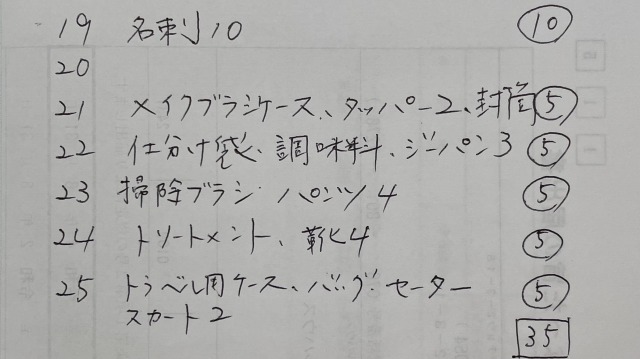 19 名刺10 10
20
21 メイクブラシケース、タッパー2、封筒 5
22 仕分け袋、調味料、ジーパン3 5
23 掃除ブラシ パンツ4 5
24 トリートメント、靴4 5
25 トラベル用ケース、バッグ セーター 5
スカート2
35